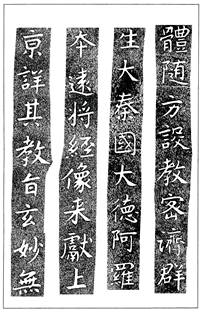 體随方設教宻濟群
生大秦國大德阿羅
夲遠将經像来獻上
亰詳其教旨玄妙無